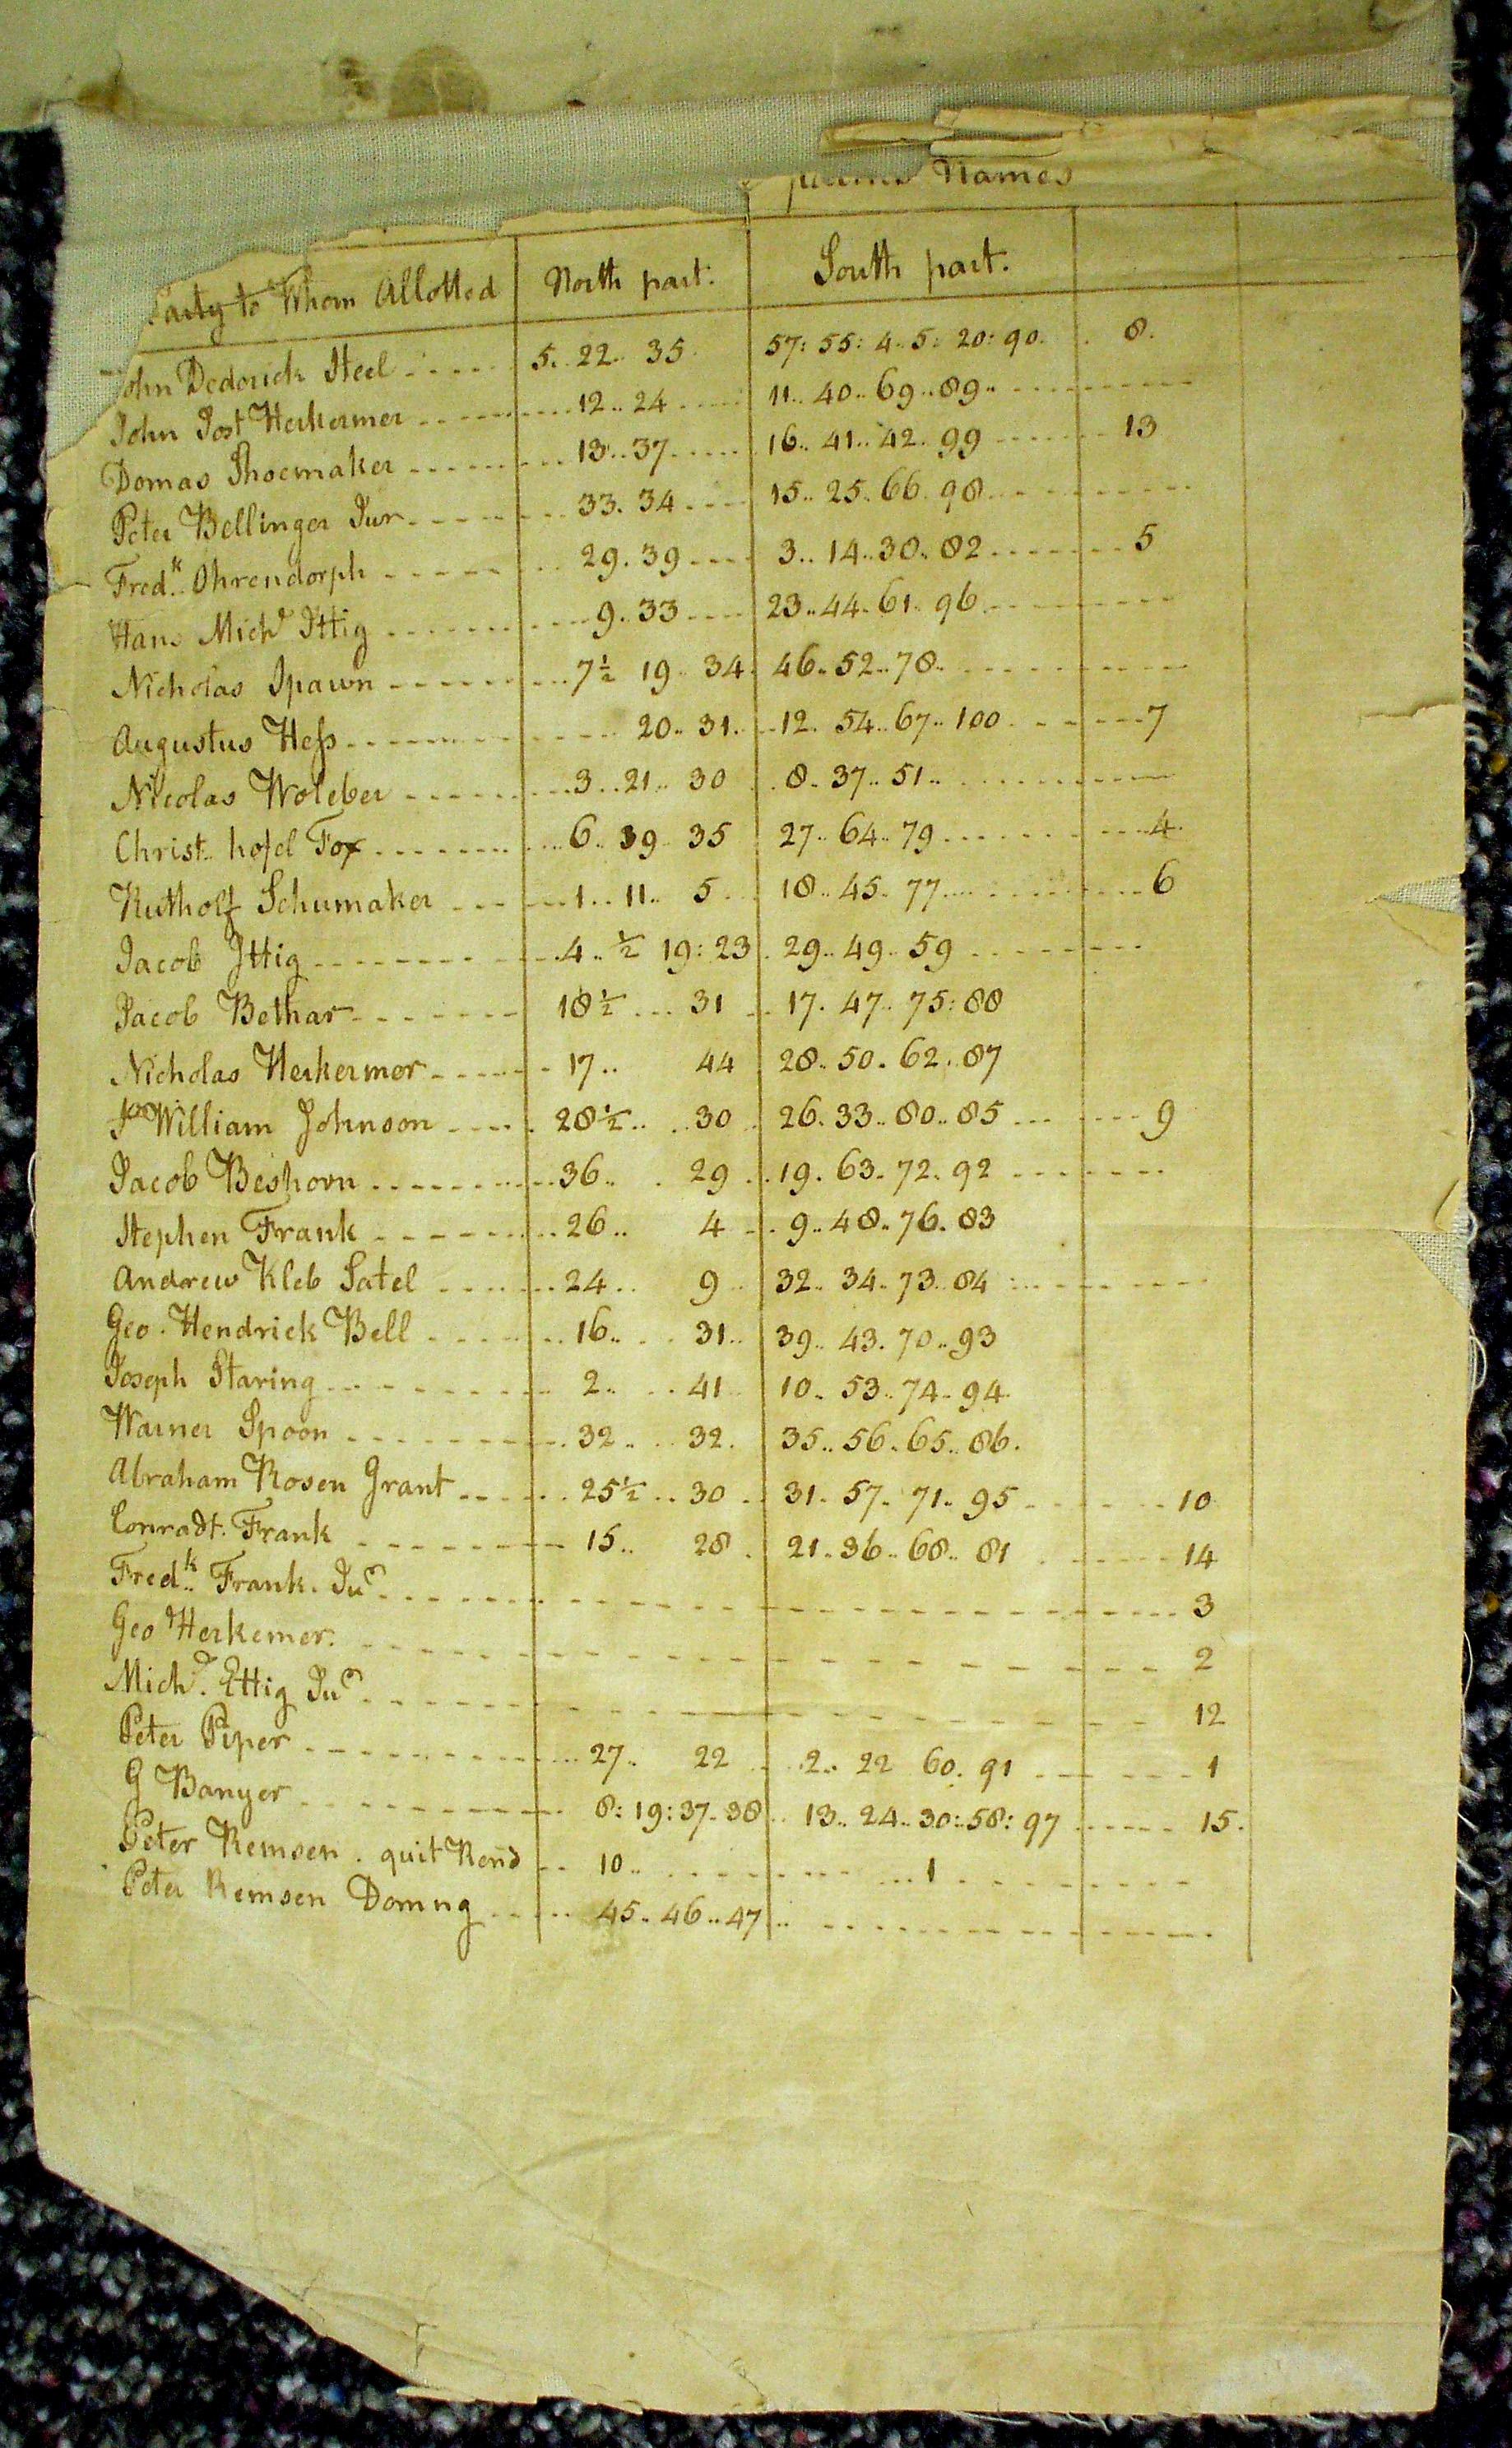 Names
Party to Whom Allotted North part. South part.
John Dederick Steel 5.. 22.. 35 57: 55: 4.. 5: 20: 90. 8.
John Jost Herkermer 12.. 24 11.. 40.. 69.. 89..
Domas Shoemaker 13.. 37 16.. 41.. 42.. 99 13
Peter Bellinger Jur 33. 34 15.. 25. 66. 98
Fredk. Ohrendorph 29. 39 3.. 14.. 30.. 82 5
Hans Michl Ittig 9. 33 23.. 44. 61. 96
Nicholas Spawn 7½ 19.. 34 46.. 52.. 78..
Augustus Hess 20.. 31. 12. 54.. 67.. 100 7
Nicolas Woleber 3.. 21.. 30 8. 37.. 51..
Christ.. hofel Fox 6.. 39 35 27.. 64.. 79 4
Rutholf Schumaker 1.. 11.. 5 18.. 45. 77 6
Jacob Ittig 4.. ½ 19: 23 29.. 49.. 59
Jacob Bethar 18½ 31 17. 47.. 75: 88
Nicholas Herkermer 17.. 44 28.. 50. 62. 87
Sr William Johnson 28½.. 30 26. 33.. 80.. 85 9
Jacob Beshorn 36.. 29 19. 63. 72. 92
Stephen Frank 26.. 4 9.. 48.. 76. 83
Andrew Kleb Satel 24.. 9 32.. 34. 73.. 84
Geo. Hendrick Bell 16.. 31.. 39.. 43. 70.. 93
Joseph Staring 2.. 41 10.. 53.. 74. 94.
Warner Spoon 32.. 32. 35.. 56. 65.. 86.
Abraham Rosen Grant 25½.. 30 31. 57. 71. 95 10
Conradt. Frank 15.. 28 21. 36.. 68.. 81 14
Fredk. Frank. Jur 3
Geo Herkemer. 2
Michl. Ettig Jur 12
Peter Piper 27.. 22 2.. 22 60. 91 1
G Banyer 8: 19: 37. 38 13.. 24.. 30: 58: 97 15.
Peter Remsen. quit Rend 10.. 1
Peter Remsen Domng 45.. 46.. 47